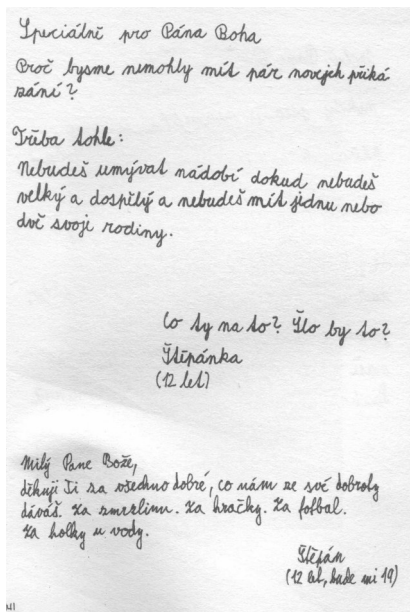 Speciálně pro Pána Boha
Proč bysme nemohly mít pár novejch přiká
zání?
Třeba tohle:
Nebudeš umývat nádobí dokud nebudeš
velký a dospělý a nebudeš mít jednu nebo
dvě svoje rodiny.
Co ty na to? Šlo by to?
Štěpánka
(12 let)
Milý Pane Bože,
děkuji Ti za všechno dobré, co nám ze své dobroty
dáváš. Za zmrzlinu. Za hračky. Za fotbal.
Za holky u vody.
Štěpán
(12 let, bude mi 19)
41